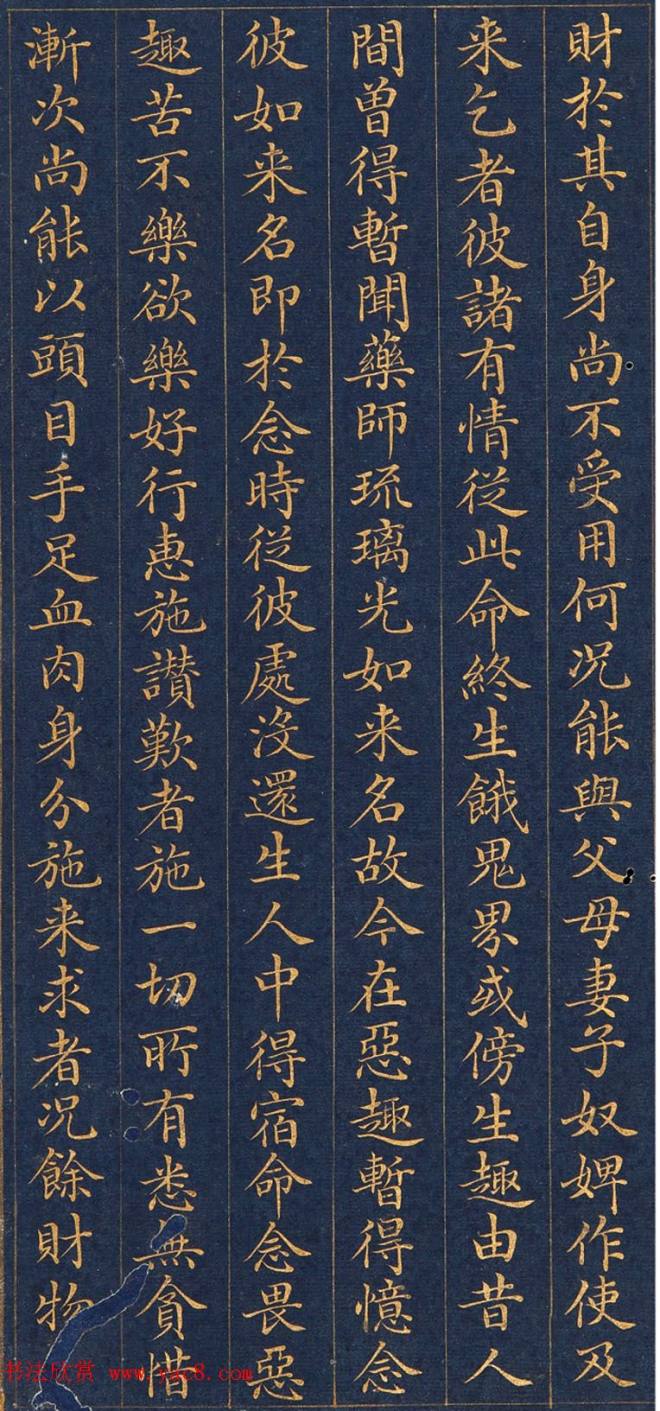 財於其自身尚不受用何況能與父母妻子奴婢作使及
来乞者彼諸有情從此命終生餓鬼界或傍生趣由昔人
間曾得暫聞藥師琉璃光如来名故今在惡趣暫得憶念
彼如来名即於念時從彼處沒還生人中得宿命念畏惡
趣苦不樂欲樂好行惠施讃歎者施一切所有悉無貪惜
漸次尚能以頭目手足血肉身分施来求者況餘財物
书法欣赏 www.yac8.com